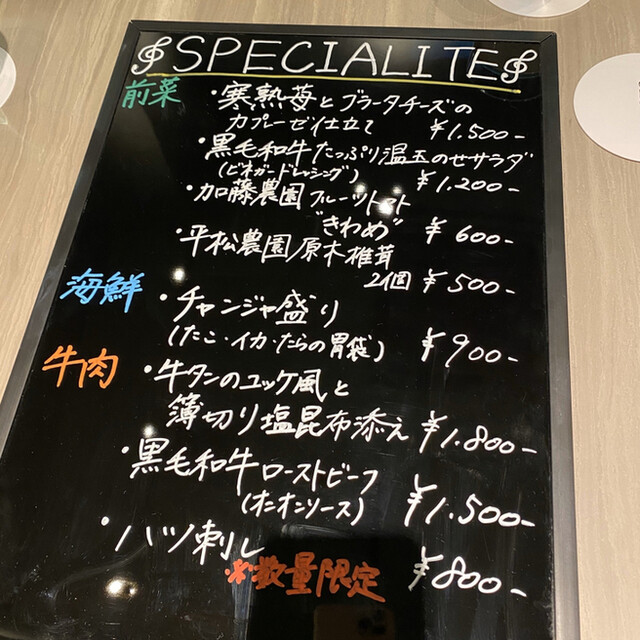 SPECIALITE
前菜
・寒熟苺とブラータチーズの
カプレーゼ仕立て ¥1.500-
・黒毛和牛たっぷり温玉のせサラダ
(ビネガードレッシング) ¥1.200-
・加藤農園フルーツトマト
"きわめ" ¥600-
・平松農園原木椎茸
2個 ¥500-
海鮮
・チャンジャ盛り
(たこ・イカ・たらの胃袋) ¥900-
牛肉
・牛タンのユッケ風と
簿切り塩昆布添え ¥1.800-
・黒毛和牛ローストビーフ
(オニオンソース) ¥1.500-
・ハツ刺し ¥800-
※数量限定